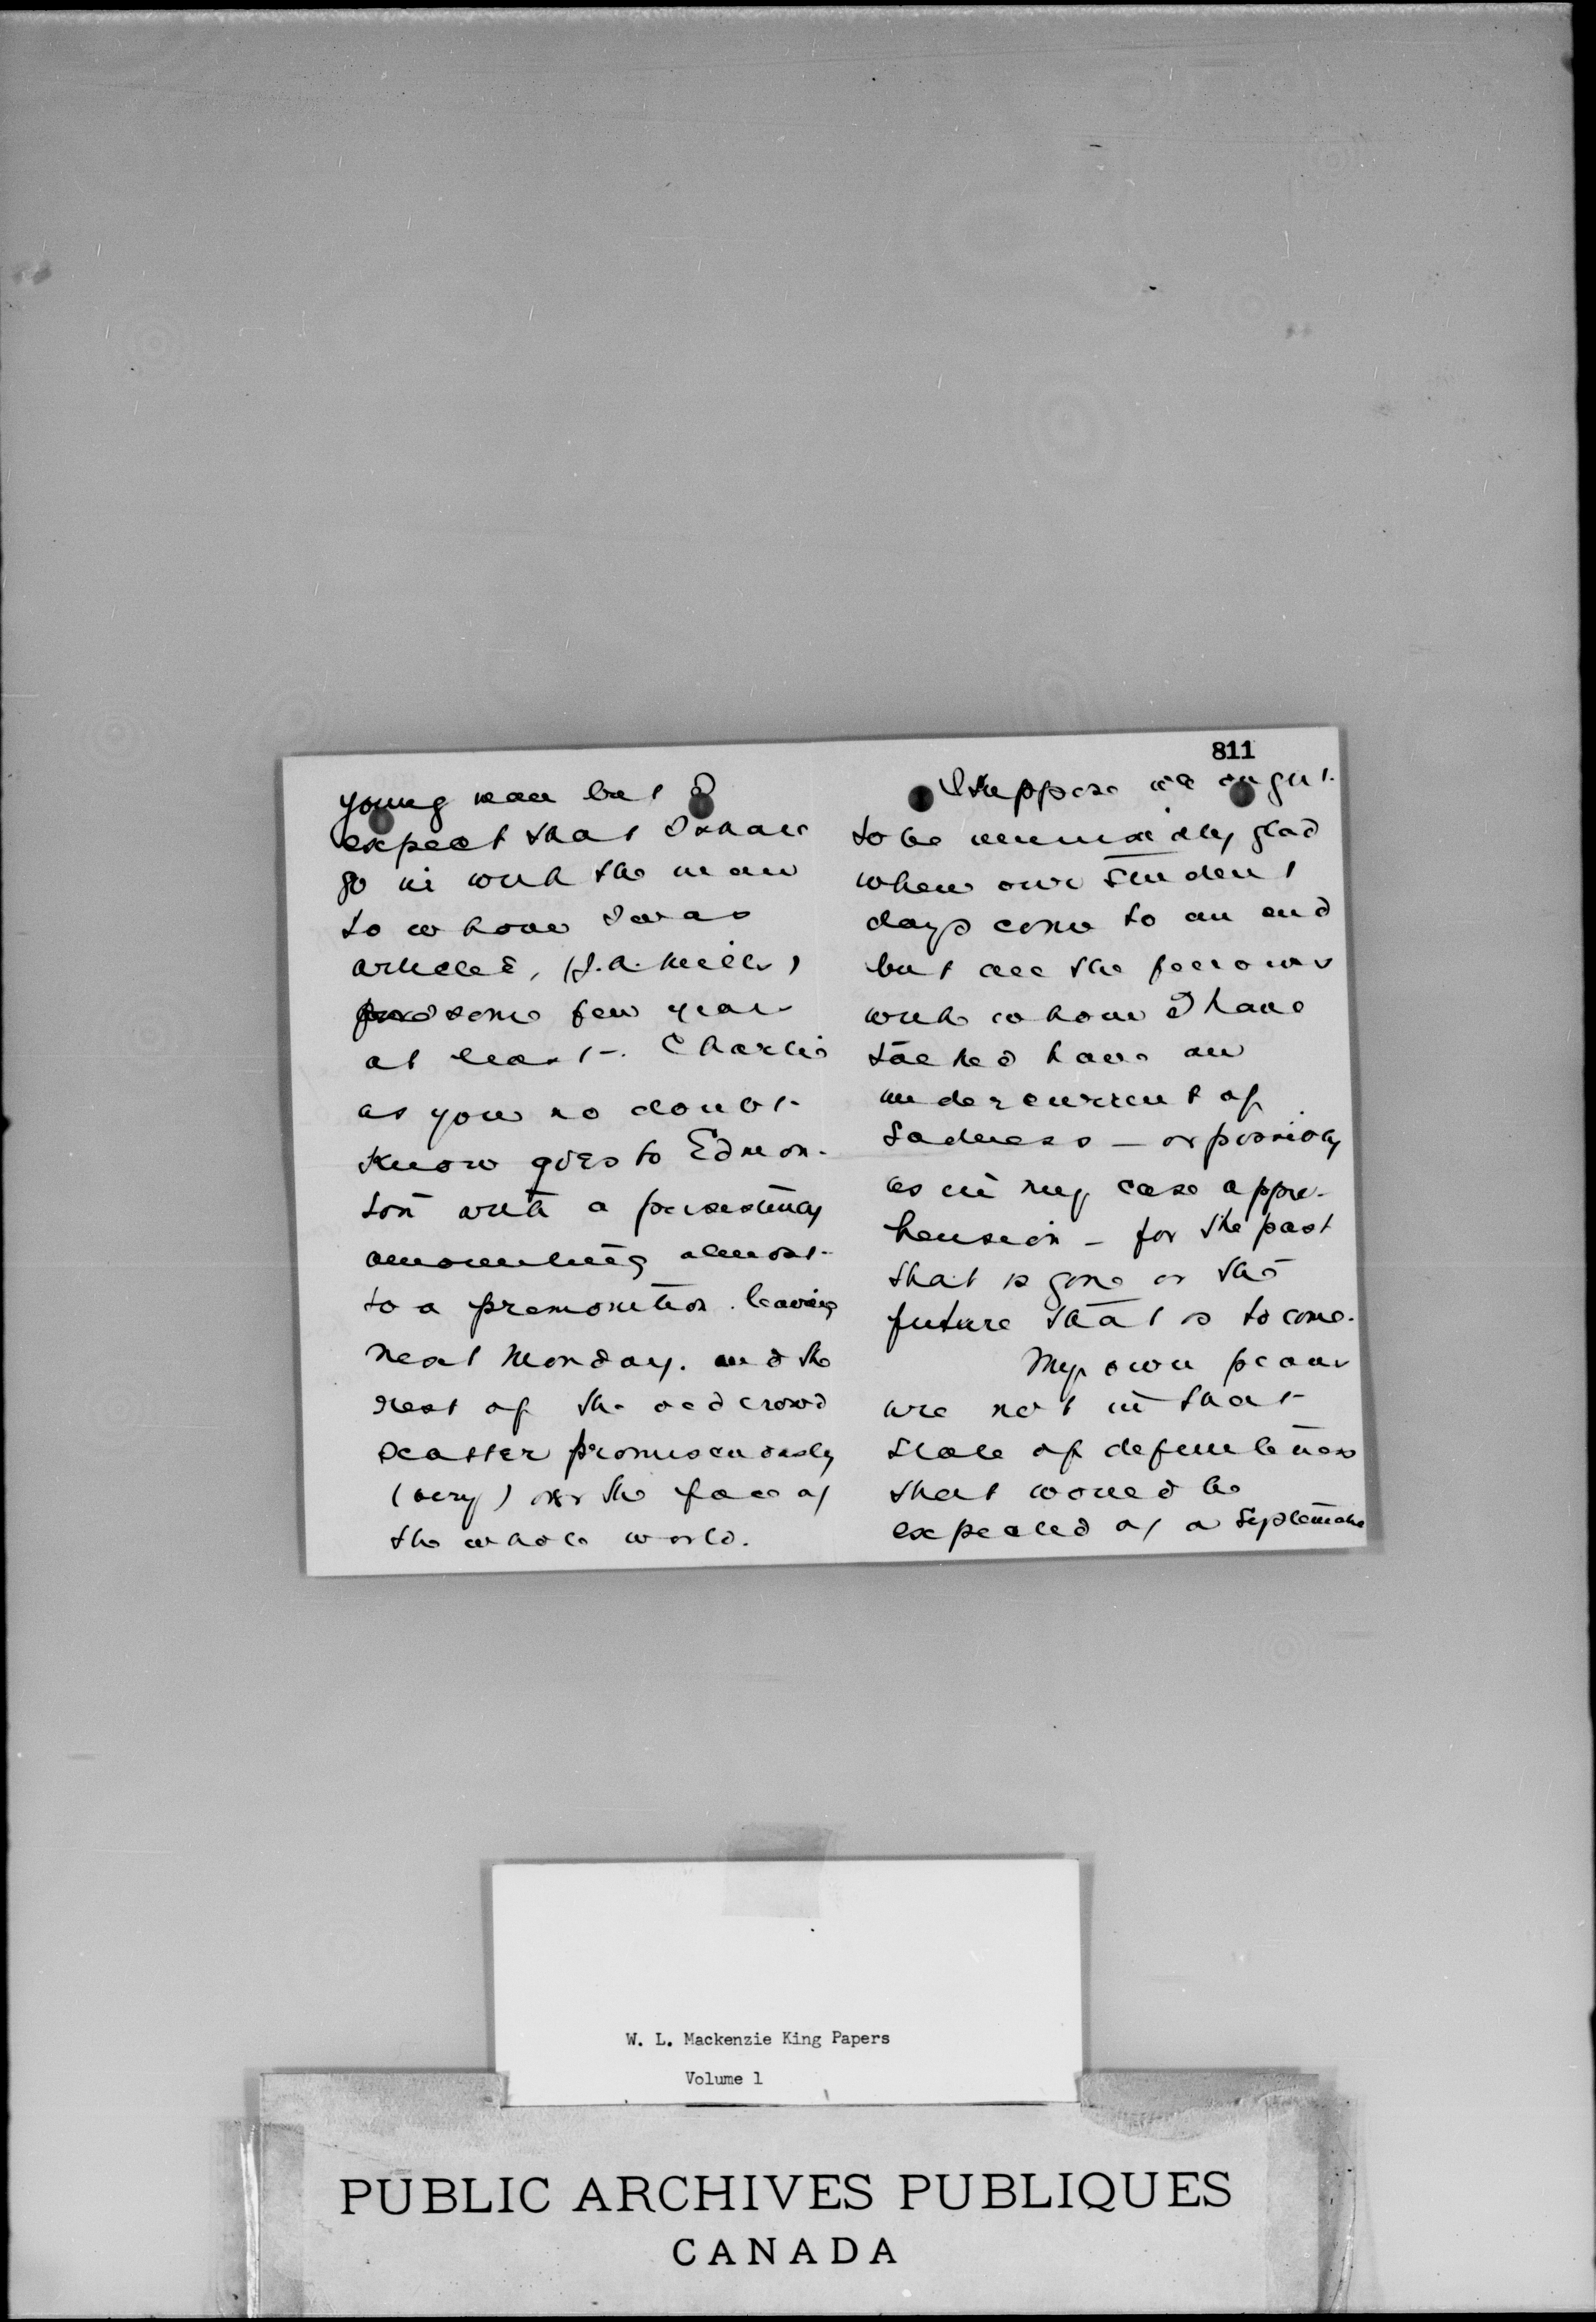 young man but I
expect that I shall
go in with the man
to whom I was
articled, (J.A. Mills)
some few years
at least. Charlie
as you no doubt
know goes to Edmon-
ton with a persistency
amounting almost
to a premonition. leaving
next Monday. and the
rest of the old crowd
scatter promiscuously
(very) over the face of
the whole world.
811
I suppose we ought
to be glad
when our student
days come to an end
but all the fellows
with whom I have
talked have an
undercurrent of
sadness — or possibly
as in my case appre-
hension – for the past
that is gone or the
future that is to come.
My own plans
are not in that
state of definiteness
that would be
expected of a systematic
W. L. Mackenzie King Papers
Volume 1
PUBLIC ARCHIVES PUBLIQUES
CANADA